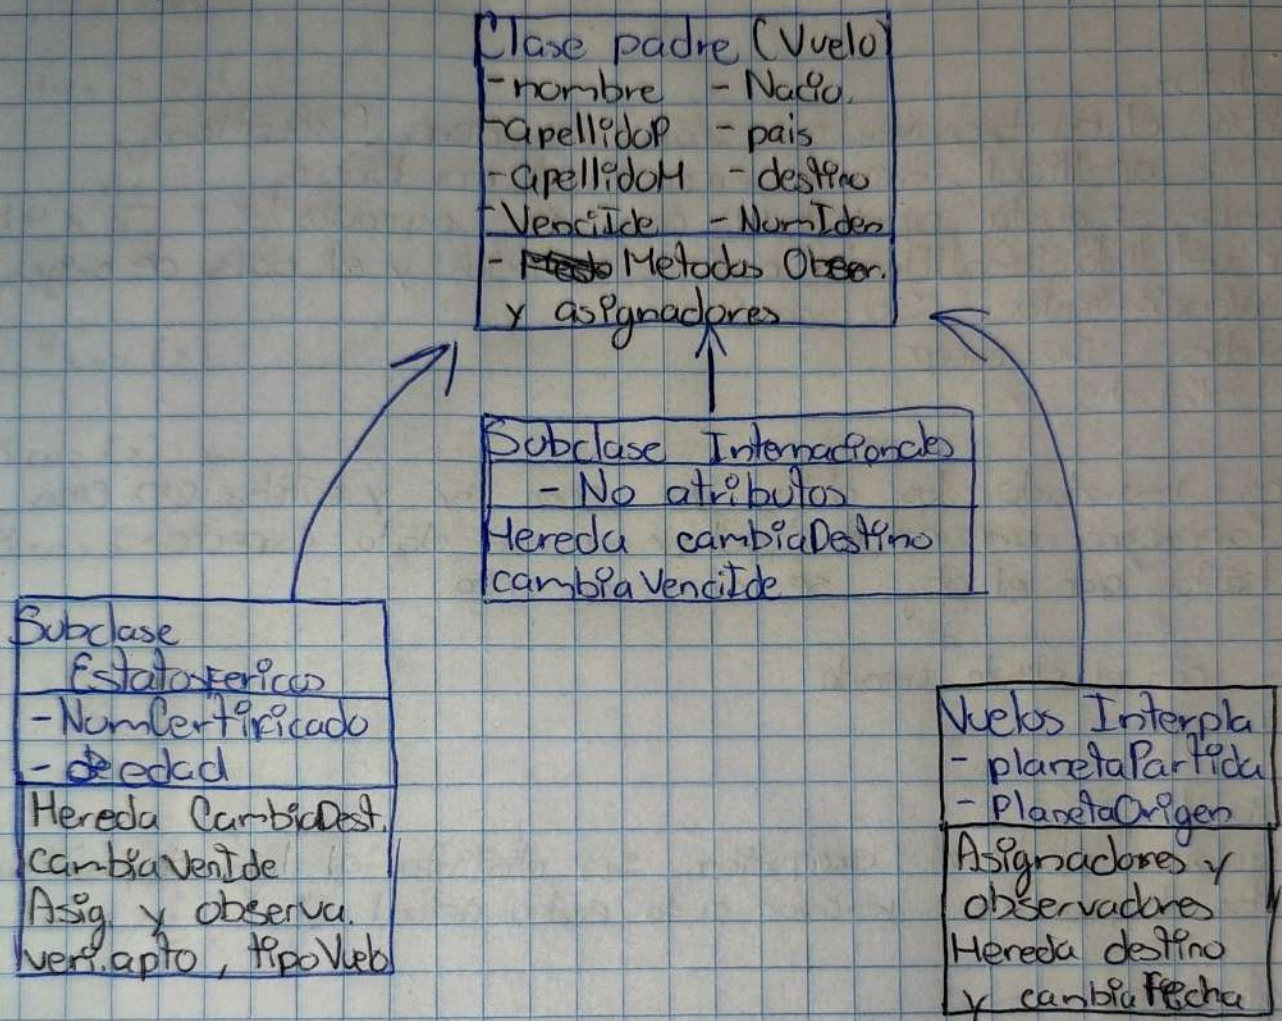 Clase padre (Vuelo)
- nombre - Nacio.
- apellidoP - pais
- apellidoM - destino
- VenciIde - NumIden
- Metodos Obser.
y asignadores
Subclase Internacionales
- No atributos
Hereda cambiaDestino
cambiaVenciIde
Subclase
Estatosfericos
- NumCertificado
- edad
Hereda CambiaDest.
cambiaVenIde
Asig y observa.
veri.apto, tipoVuelo
Vuelos Interpla
- planetaPartida
- PlanetaOrigen
Asignadores y
observadores
Hereda destino
y cambia Fecha